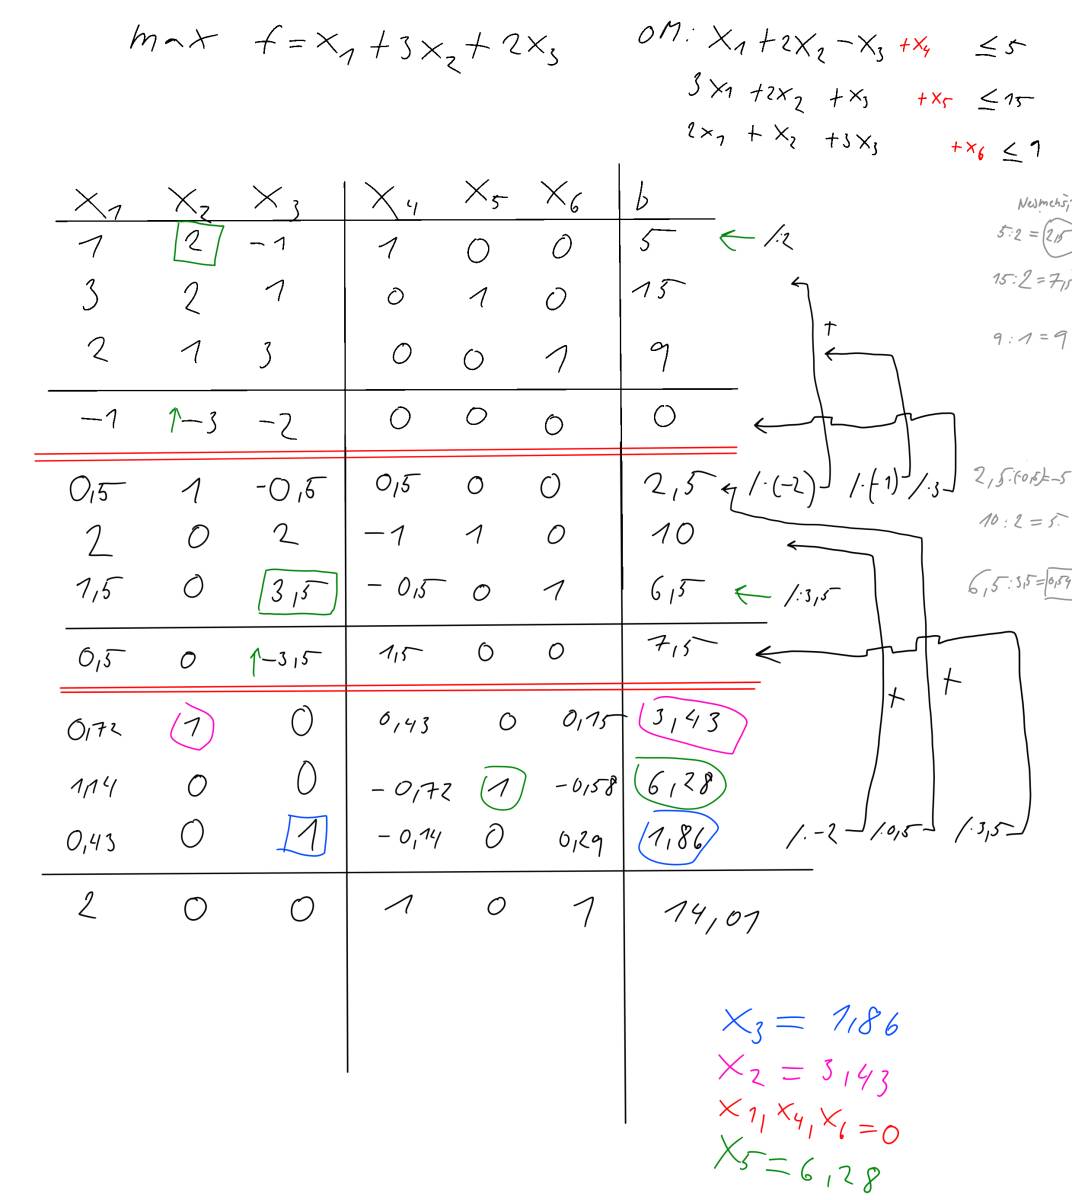 max f = x₁ + 3x₂ + 2x₃
OM: x₁ + 2x₂ - x₃ + x₄ ≤ 5
3x₁ + 2x₂ + x₃ + x₅ ≤ 15
2x₁ + x₂ + 3x₃ + x₆ ≤ 9
x₁ x₂ x₃ x₄ x₅ x₆ b
1 2 -1 1 0 0 5 ← /:2
3 2 1 0 1 0 15
2 1 3 0 0 1 9
-1 ↑-3 -2 0 0 0 0
5:2 = 2,5
15:2 = 7,5
9:1 = 9
+
0,5 1 -0,5 0,5 0 0 2,5 /·(-2) /·(-1) /·3
2 0 2 -1 1 0 10
1,5 0 3,5 -0,5 0 1 6,5 ← /:3,5
0,5 0 ↑-3,5 1,5 0 0 7,5
2,5:(-0,5)=-5
10:2 = 5
6,5:3,5=
+ +
0,72 1 0 0,43 0 0,15 3,43
1,14 0 0 -0,72 1 -0,58 6,28
0,43 0 1 -0,14 0 0,29 1,86 /·-2 /·0,5 /·3,5
2 0 0 1 0 1 14,01
x₃ = 1,86
x₂ = 3,43
x₁, x₄, x₆ = 0
x₅ = 6,28